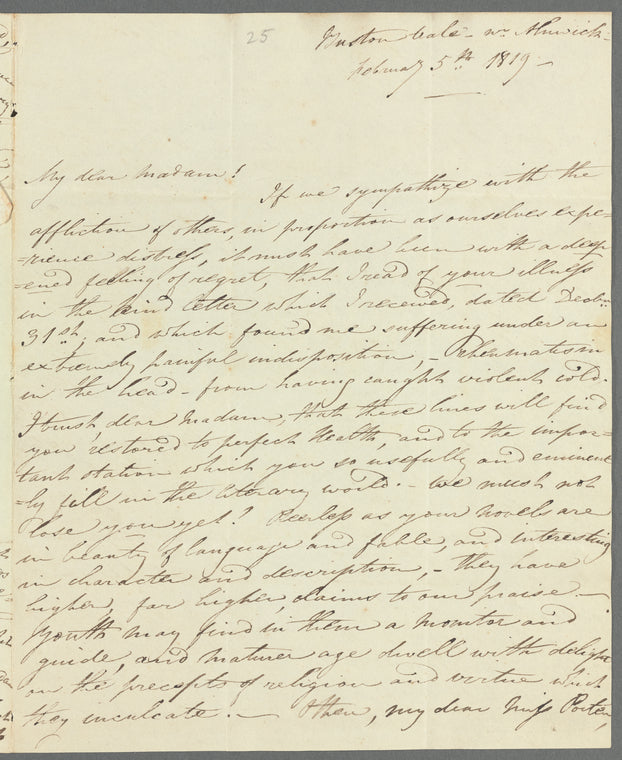 25
Buston Vale - nr. Alnwick -
Febuay 5th. 1819 -
My dear Madam!
If we sympathize with the
affliction of others, in proportion as ourselves expe=
=rience distress, it must have been with a deep
=ened feeling of regret, that I read of your illness
in the kind letter which I received, dated Decbr
31st; and which found me suffering under an
extremely painful indisposition, - Rheumatism
in the head - from having caught violent cold.
I trust, dear Madam, that these lines will find
you restored to perfect Health, and to the impor=
tant station which you so usefully and eminent
=ly fill in the literary world. - We must not
lose you yet! Peerless as your novels are
in beauty of language and fable, and interesting
in character and description, - they have
higher, far higher, claims to our praise -
Youth may find in them a monitor and
guide, and maturer age dwell with delight
on the precepts of religion and virtue which
they inculcate. - Then, my dear Miss Porter,